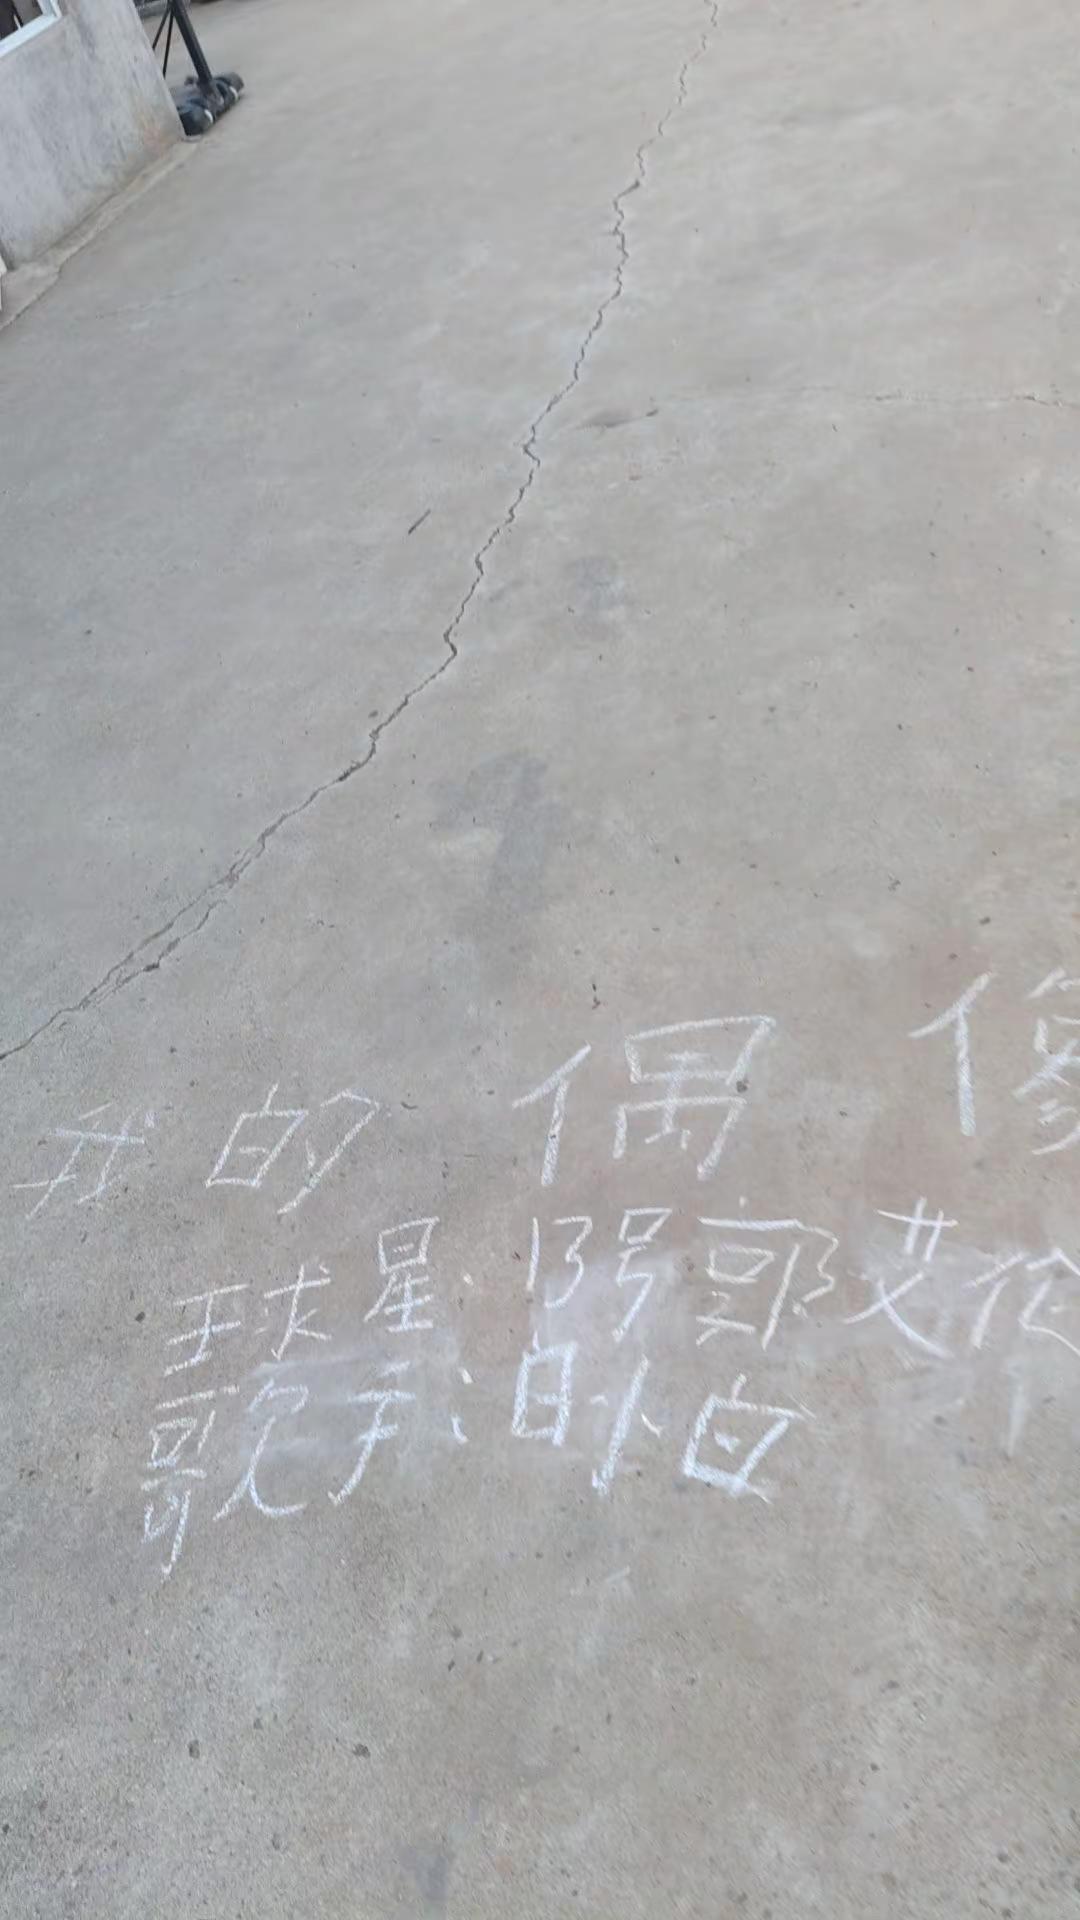 我的偶像
球星:13号郭艾伦
歌手:的小白